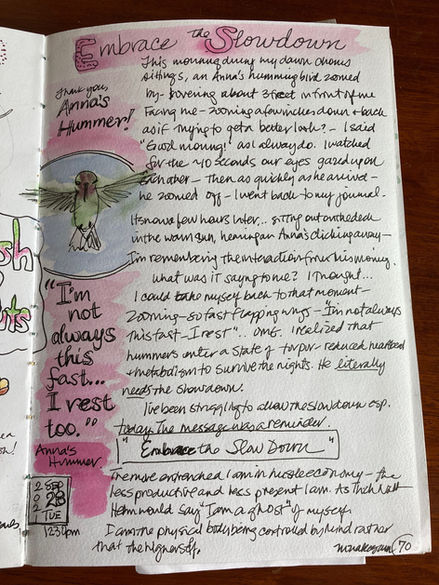 Embrace the Slowdown
This morning during my dawn chorus
sittings, an Anna's hummingbird zoomed
by - hovering about 3 feet in front of me
Facing me - zooming a few inches down + back
as if trying to get a better look? - I said
"Good morning! as I always do. I watched
for the ~10 seconds our eyes gazed upon
each other - Then as quickly as he arrived -
he zoomed off - I went back to my journal.
Thank you,
Anna's
Hummer!
It's now a few hours later... sitting out on the deck
in the warm sun, hearing an Anna's clicking away -
I'm remembering the interaction from this morning.
what was it saying to me? I thought...
I could take myself back to that moment -
zooming - so fast flapping wings - "I'm not always
this fast - I rest".. OMG. I realized that
hummers enter a state of torpor - reduced heartbeat
+ metabolism to survive the nights. He literally
needs the slowdown.
I've been struggling to allow the slowdown esp.
today. The message was a reminder.
"Embrace the Slow Down"
"I'm
not
always
this
fast...
I rest
too."
Anna's
Hummer
2021
SEP
28
TUE
12:37pm
The more entrenched I am in hustle economy - the
less productive and less present I am. As Thich Nhat
Hanh would say "I am a ghost" of myself.
I am the physical body being controlled by mind rather
that the higher self.
70